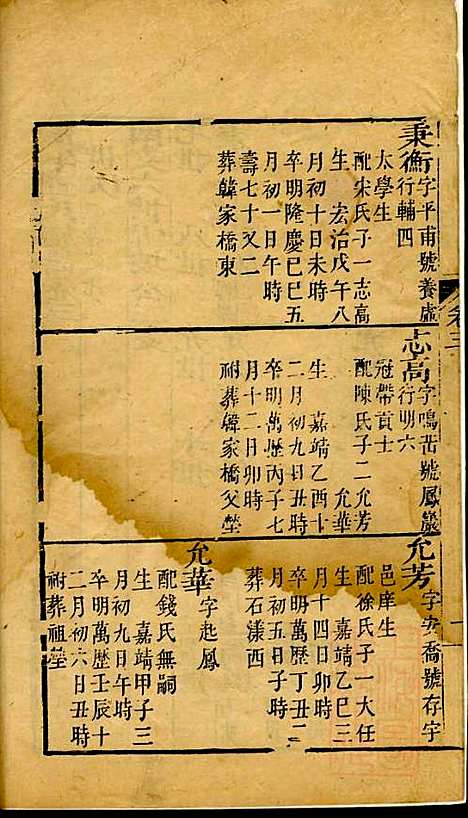 秉衡字平甫號養虛
行輔四
太學生
配宋氏子一志高
生　宏治戊午八
月初十日未時
卒明隆慶己巳五
月初一日午時
壽七十又二
葬韓家橋東
志高字鳴岳號鳳巖
行明六
冠帶貢士
配陳氏子二允芳
允華
生　嘉靖乙酉十
二月初九日丑時
卒明萬歷丙子七
月十二日卯時
祔葬韓家橋父塋
允芳字安喬號存宇
邑庠生
配徐氏子一大任
生　嘉靖乙巳三
月十四日卯時
卒明萬歷丁丑二
月初五日子時
葬石漾西
允華字起鳳
配錢氏無嗣
生　嘉靖甲子三
月初九日午時
卒明萬歷壬辰十
二月初六日丑時
祔葬祖塋
卷三